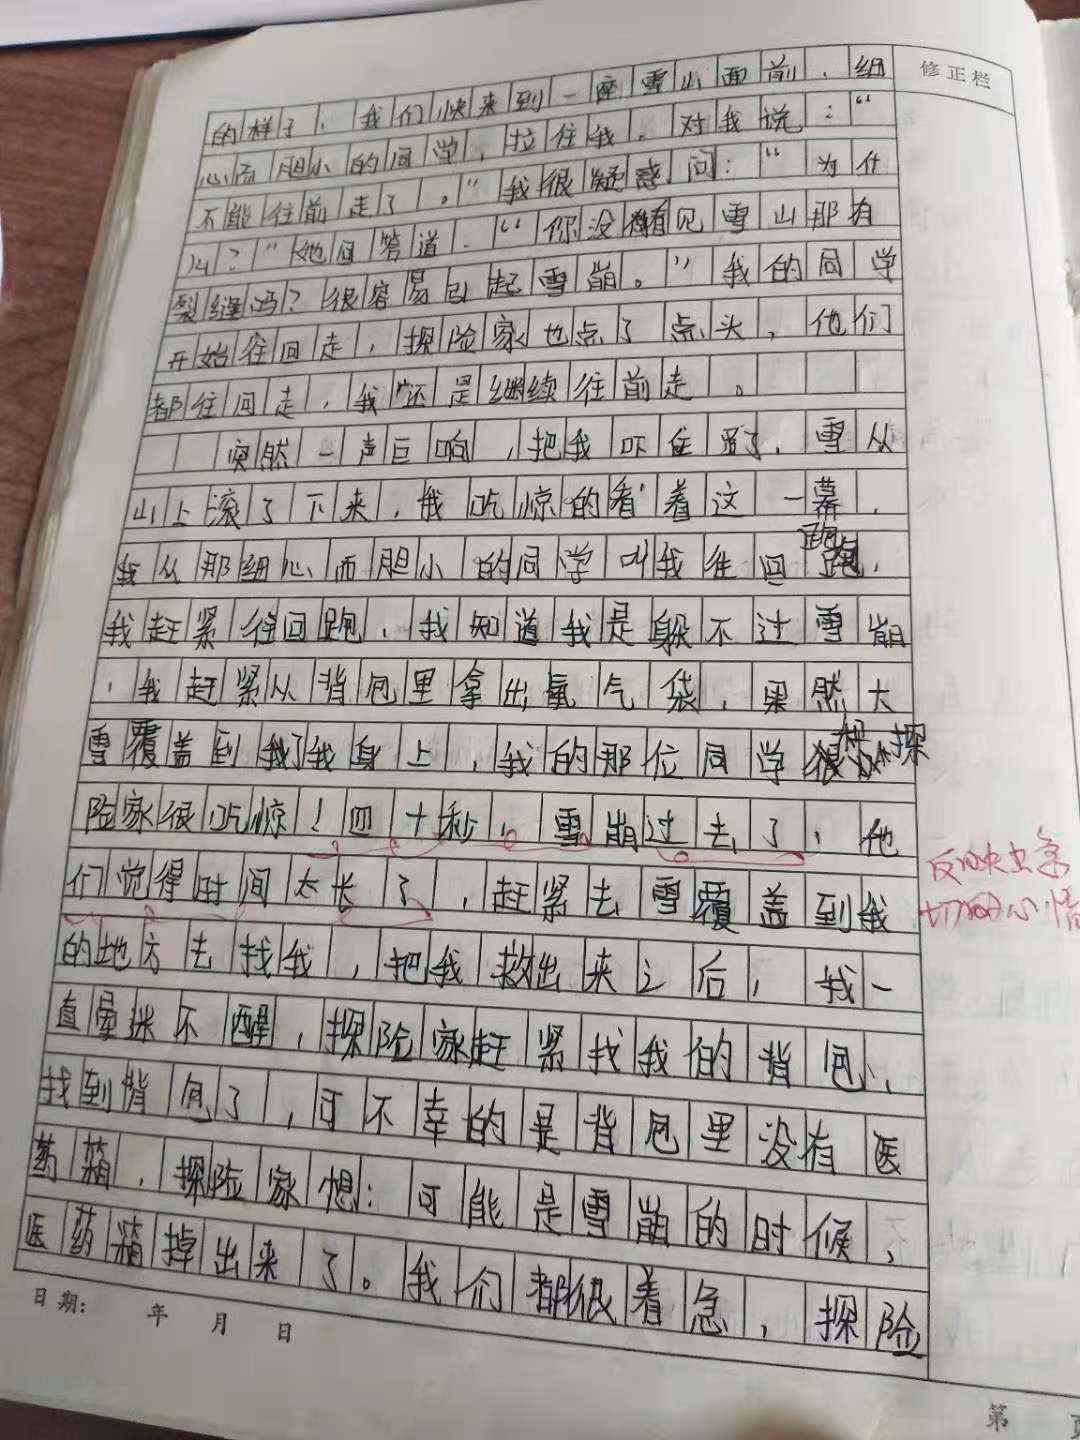 修正栏
的样子，我们快来到一座雪山面前，细
心而胆小的同学，拉住我。对我说：“
不能往前走了。”我很疑惑问：“为什
么？”她回答道：“你没看见雪山那有
裂缝吗？很容易引起雪崩。”我的同学
开始往回走，探险家也点了点头，他们
都往回走，我还是继续往前走。
突然一声巨响，把我吓住了，雪从
山上滚了下来，我吃惊的看着这一幕，
我从那细心而胆小的同学叫我往回跑，
我赶紧往回跑，我知道我是躲不过雪崩
，我赶紧从背包里拿出氧气袋，果然大
雪覆盖到我身上，我的那位同学和探
险家很吃惊！四十秒，雪崩过去了，他
们觉得时间太长了，赶紧去雪覆盖到我
的地方去找我，把我救出来之后，我一
直晕迷不醒，探险家赶紧找我的背包，
找到背包了，可不幸的是背包里没有医
药箱，探险家想：可能是雪崩的时候，
医药箱掉出来了。我们都很着急，探险
反映出急
切的心情
日期： 年 月 日
第 页